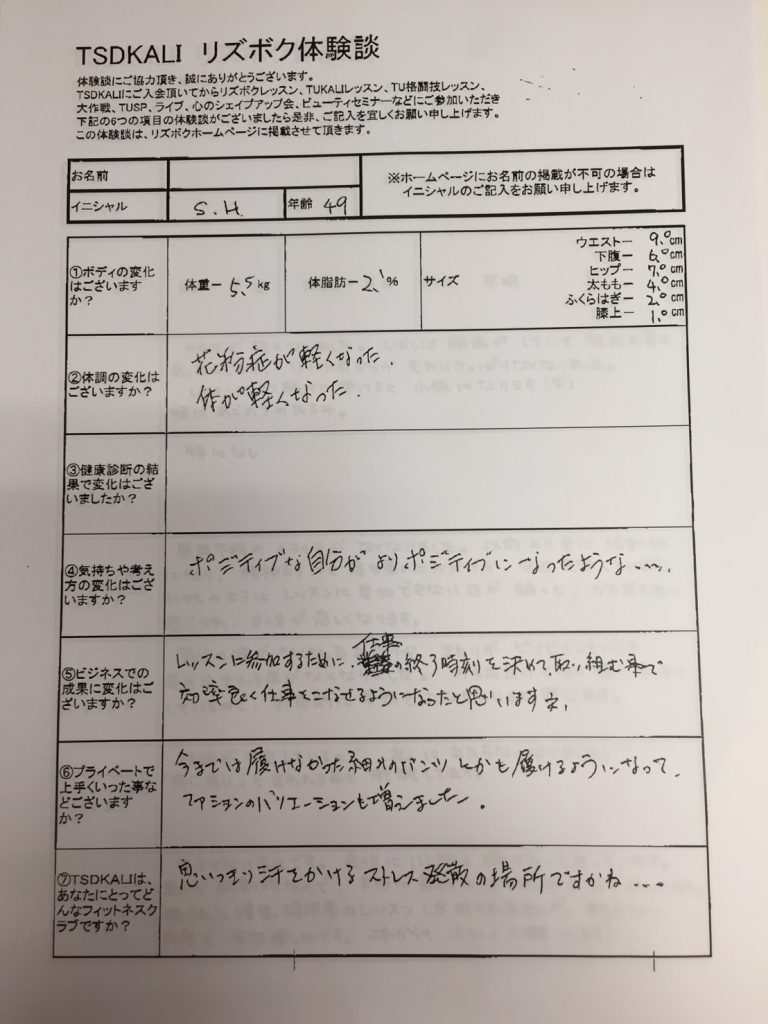 TSDKALI リズボク体験談
体験談にご協力頂き、誠にありがとうございます。
TSDKALIにご入会頂いてからリズボクレッスン、TUKALIレッスン、TU格闘技レッスン、
大作戦、TUSP、ライブ、心のシェイプアップ会、ビューティセミナーなどにご参加いただき
下記の6つの項目の体験談がございましたら是非、ご記入を宜しくお願い申し上げます。
この体験談は、リズボクホームページに掲載させて頂きます。
お名前
※ホームページにお名前の掲載が不可の場合は
イニシャルのご記入をお願い申し上げます。
イニシャル S.H. 年齢 49
①ボディの変化
はございます
か?
体重ー 5.5kg
体脂肪ー 2.1%
サイズ
ウエストー 9.0cm
下腹ー 6.0cm
ヒップー 7.0cm
太ももー 4.0cm
ふくらはぎー 2.0cm
膝上ー 1.0cm
②体調の変化は
ございますか?
花粉症が軽くなった.
体が軽くなった.
③健康診断の結
果で変化はござ
いましたか?
④気持ちや考え
方の変化はござ
いますか?
ポジティブな自分がよりポジティブになったような…….
⑤ビジネスでの
成果に変化はご
ざいますか?
レッスンに参加するために、仕事の終了時刻を決めて、取り組む事で
効率良く仕事をこなせるようになったと思いますネ.
⑥プライベートで
上手くいった事な
どございます
か?
今までは履けなかった細めのパンツとかも履けるようになって、
ファションのバリエーションも増えましたー。
⑦TSDKALIは、
あなたにとってど
んなフィットネスク
ラブですか?
思いっきり汗をかけるストレス発散の場所ですかね…